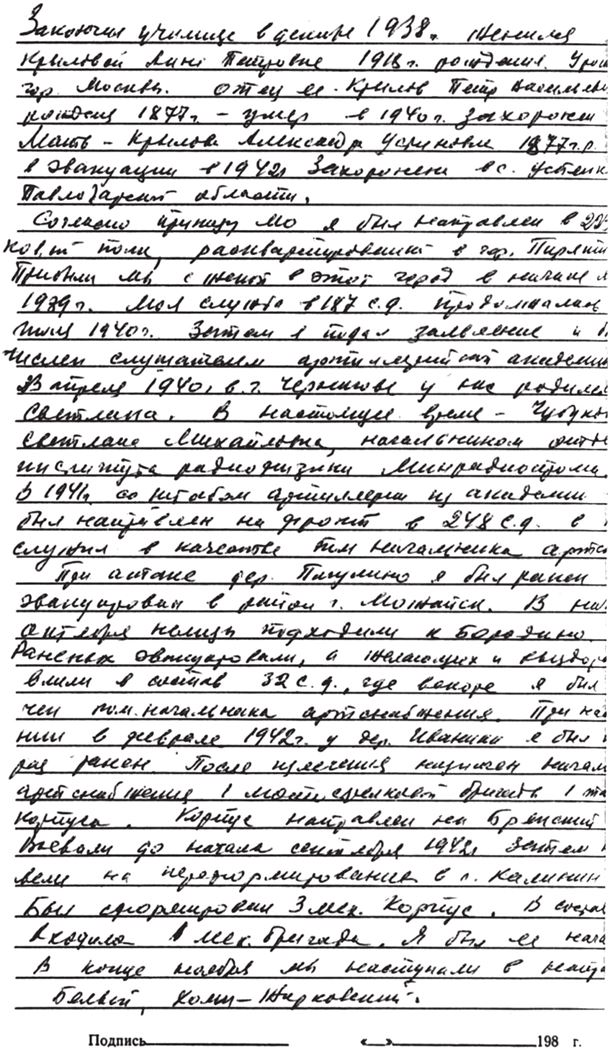 Закончил училище в декабре 1938г. женился
Крыловой Анне Петровне 1918 г. рождения. Урож
гор. Москвы. Отец ее Крылов Петр Васильеви
рождения 1877г – умер в 1940г. Захоронен
Мать – Крылова Александра Устиновна 1877г.р.
в эвакуации в 1942г Захоронена в с. Успенк
Павлодарской области.
Согласно приказу МО я был направлен в
полк, расквартированный в гор. Пирятин
Прибыли мы с женой в этот город в начале
1939г. Моя служба в 187 с.д. продолжалась
1940г. Затем я подал заявление и б
числен слушателем артиллерийской академии
В апреле 1940г. в г. Чернигове у нас родилас
Светлана. В настоящее время –
Светлана Михайловна, начальником отде
института радиофизики Минрадиопрома
В 1941г. со штабом артиллерии из академии
был направлен на фронт в 248 с.д. в
служил в качестве пом начальника артсн
При атаке дер. Пигулино я был ранен
эвакуирован в район г. Можайск. В на
октября немцы подходили к Бородино.
Раненых эвакуировали, а желающих и выздор
влили в состав 32 с.д., где вскоре я был
чен пом. начальника артснабжения. При нас
нии в феврале 1942г. у дер. Иваники я был
раз ранен. После излечения назначен начал
артснабжения 1 мотострелковой бригады 1 та
корпуса. Корпус направлен на Брянский
Воевали до начала сентября 1942г Затем
вели на переформирование в г. Калинин
Был сформирован 3 мех. корпус. В соста
входила 1 мех. бригада. Я был ее нача
В конце ноября мы наступали в напра
Белый, Холм-Жирковский.
Подпись «__» 198 г.